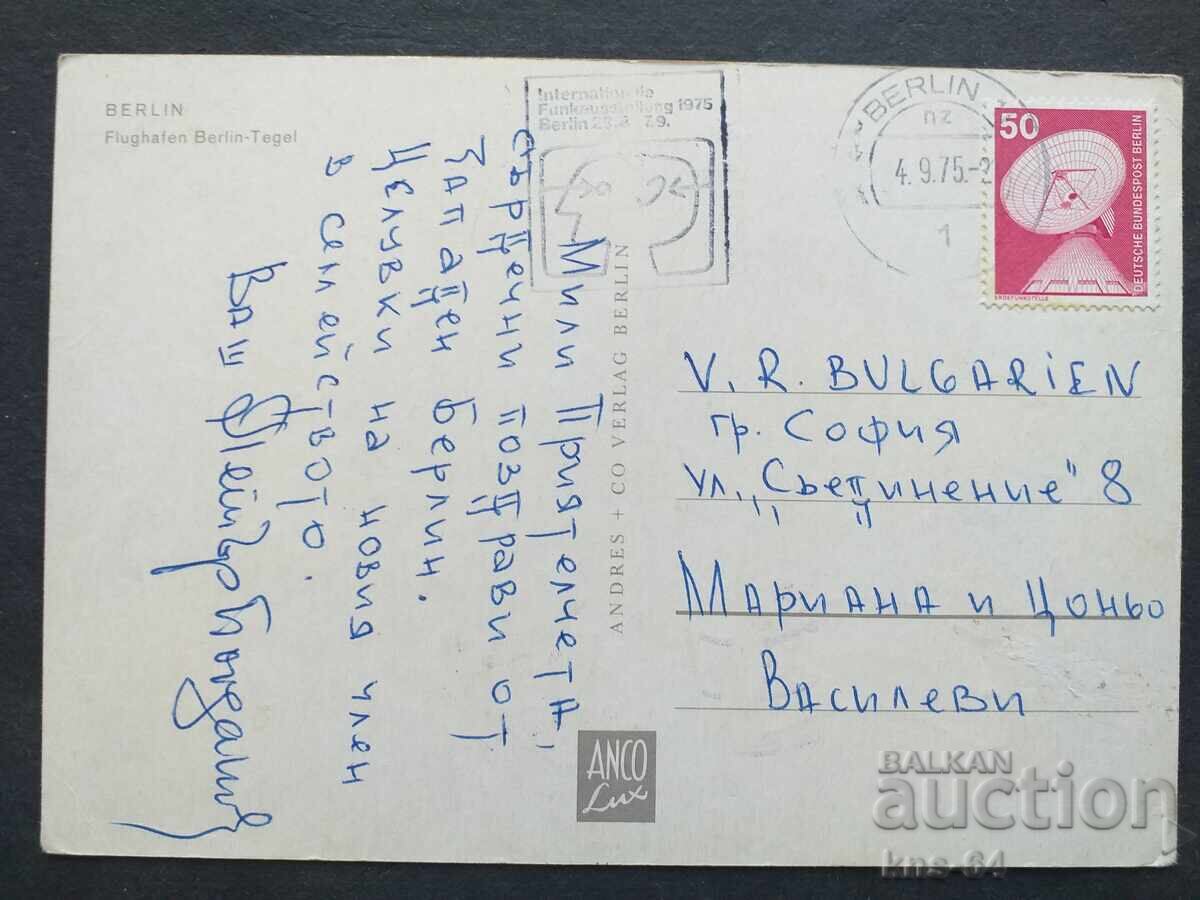 BERLIN
Flughafen Berlin-Tegel
Internationale
Funkausstellung 1975
Berlin 29.8 7.9.
BERLIN 1
nz
4.9.75.-2
1
50
DEUTSCHE BUNDESPOST BERLIN
ERDEFUNKSTELLE
Мили Приятелчета,
сърдечни поздрави от
Западен Берлин.
Целувки на новия член
в семейството.
Ваш Петър
ANDRES + CO VERLAG BERLIN
V. R. BULGARIEN
гр. София
ул. „Съединение" 8
Мариана и Цоньо
Василеви
ANCO
Lux
BALKAN
auction
kns-64